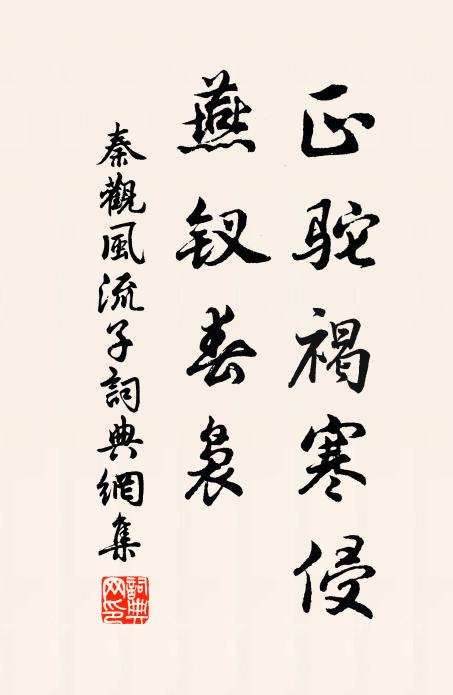 正驼褐寒侵
燕钗春袅
秦觀風流子詞典網集
詞典网印